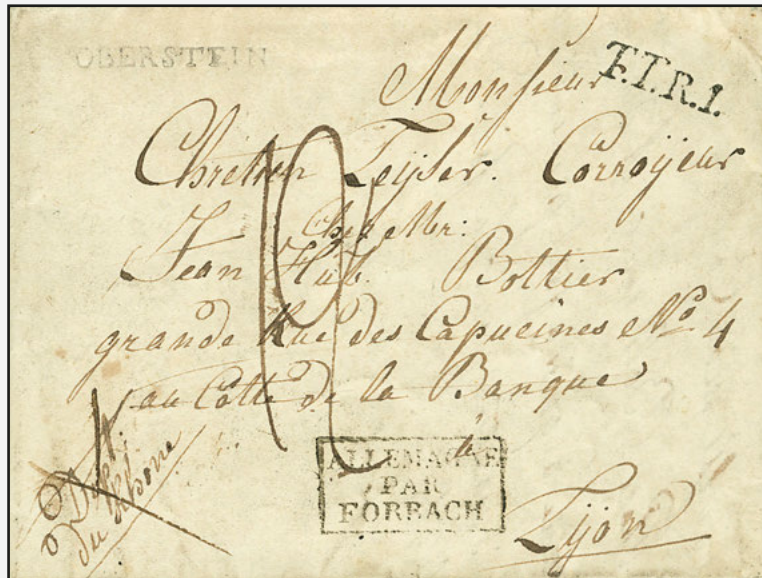 OBERSTEIN
T.T.R.1.
Monsieur
Chretien Leyser. Corroÿeur
Chez Mr:
Jean Hub. Bottier
grande Rue des Capucines No. 4
au Cotté de la Banque
à
Lÿon
ALLEMAGNE
PAR
FORBACH
Dept:
du Rhone